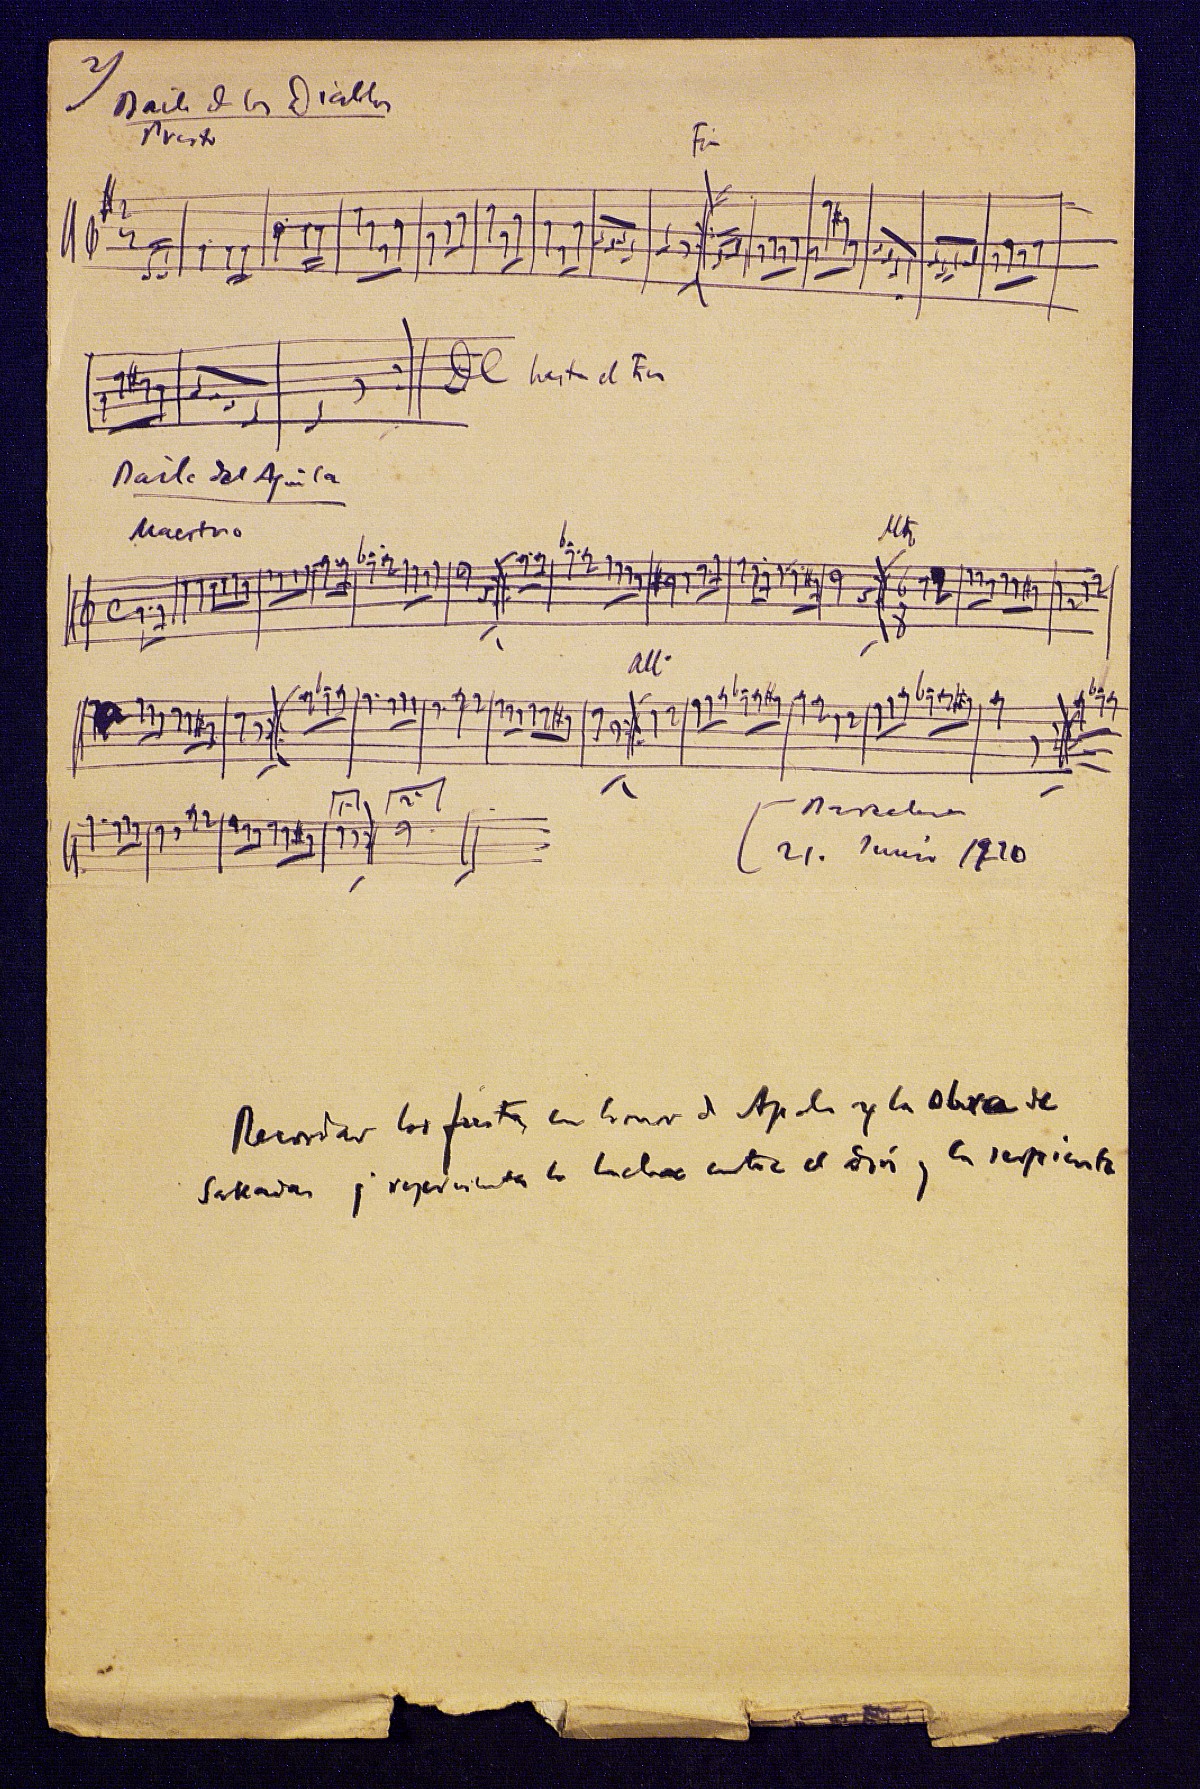 2)
Baile de los Diablos
Presto
Fin
DC hasta el Fin
Baile del Aguila
Maestoso
C
6 8
All°
1ª 2ª
Barcelona
21. Junio 1920
Recordar las fiestas en honor de Apolo y la obra de
Sakadas q representa la lucha entre el dios y la serpiente